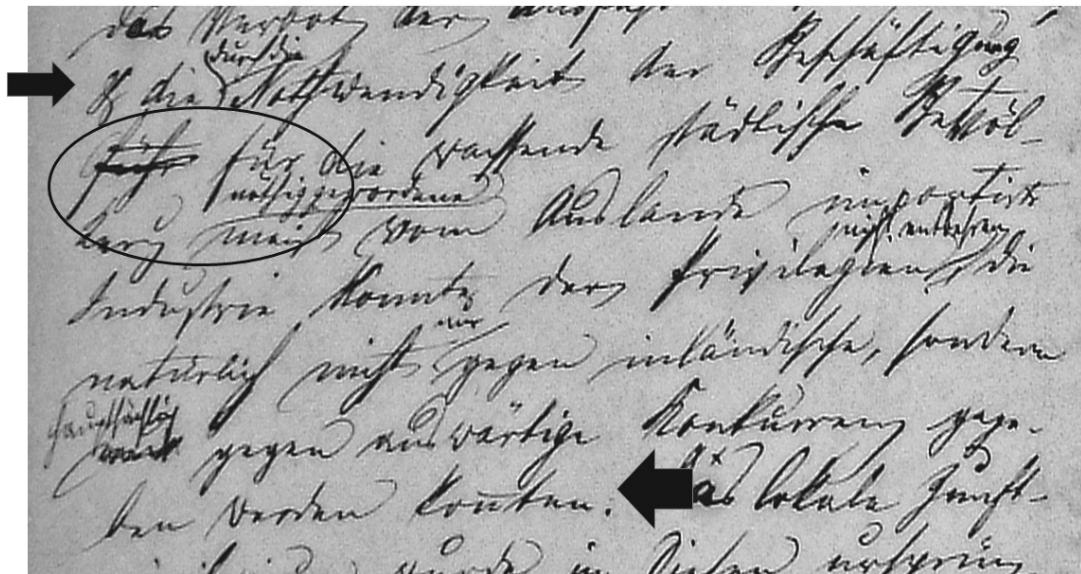 das Verbot der
& die durch die Nothwendigkeit der Beschäftigung
für die wachsende städtische Bevöl-
kerung nöthig gewordene meist vom Auslande importirte
Industrie konnte der Privilegien nicht entbehren, die
natürlich nicht nur gegen inländische, sondern
hauptsächlich gegen auswärtige Konkurrenz gege-
ben werden konnten. Das lokale Zunft-
wurde in diesen ursprün-